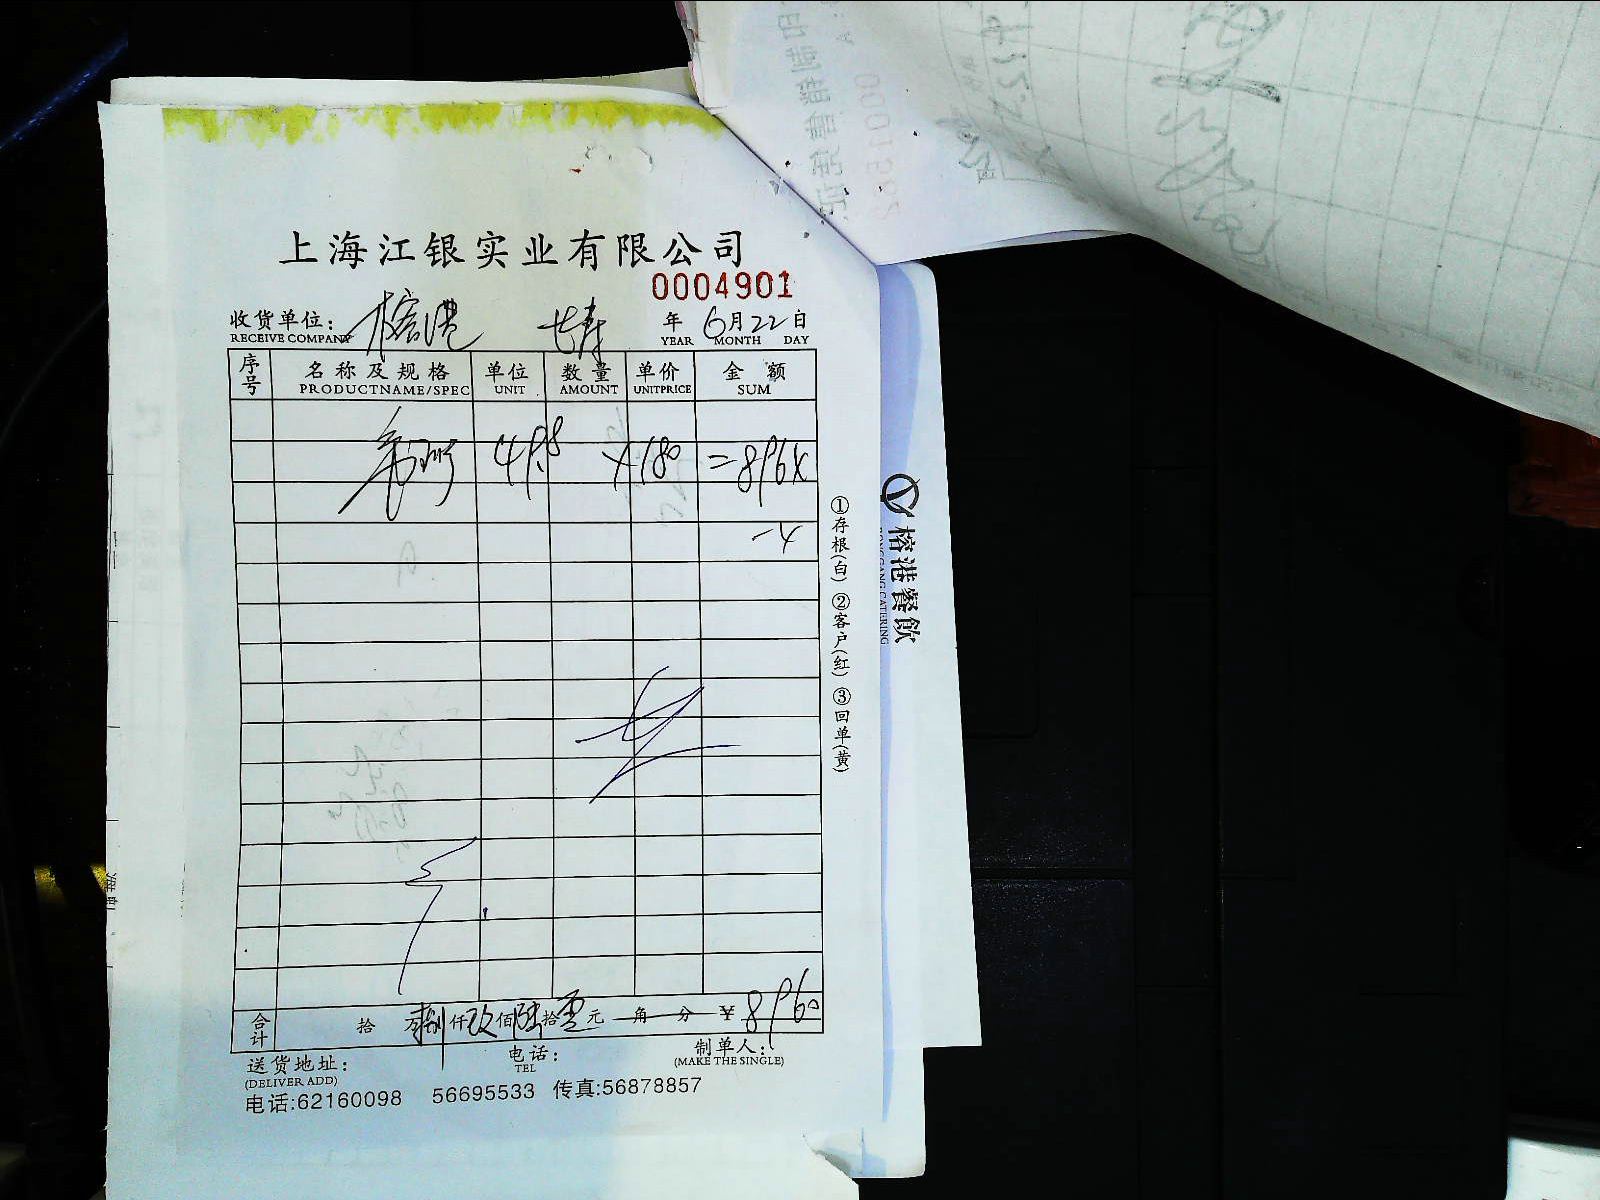 上海江银实业有限公司
0004901
收货单位： 榕港 长寿 年 6月22日
RECEIVE COMPANY YEAR MONTH DAY
序号 名称及规格 单位 数量 单价 金额
PRODUCTNAME/SPEC UNIT AMOUNT UNITPRICE SUM
49.8 ×180 =8964
-4
合计 拾 万捌仟玖佰陆拾零元 角 分 ¥8960
送货地址： 电话： 制单人：
(DELIVER ADD) TEL (MAKE THE SINGLE)
电话:62160098 56695533 传真:56878857
①存根(白) ②客户(红) ③回单(黄)
榕港餐飲
RONGGANG CATERING